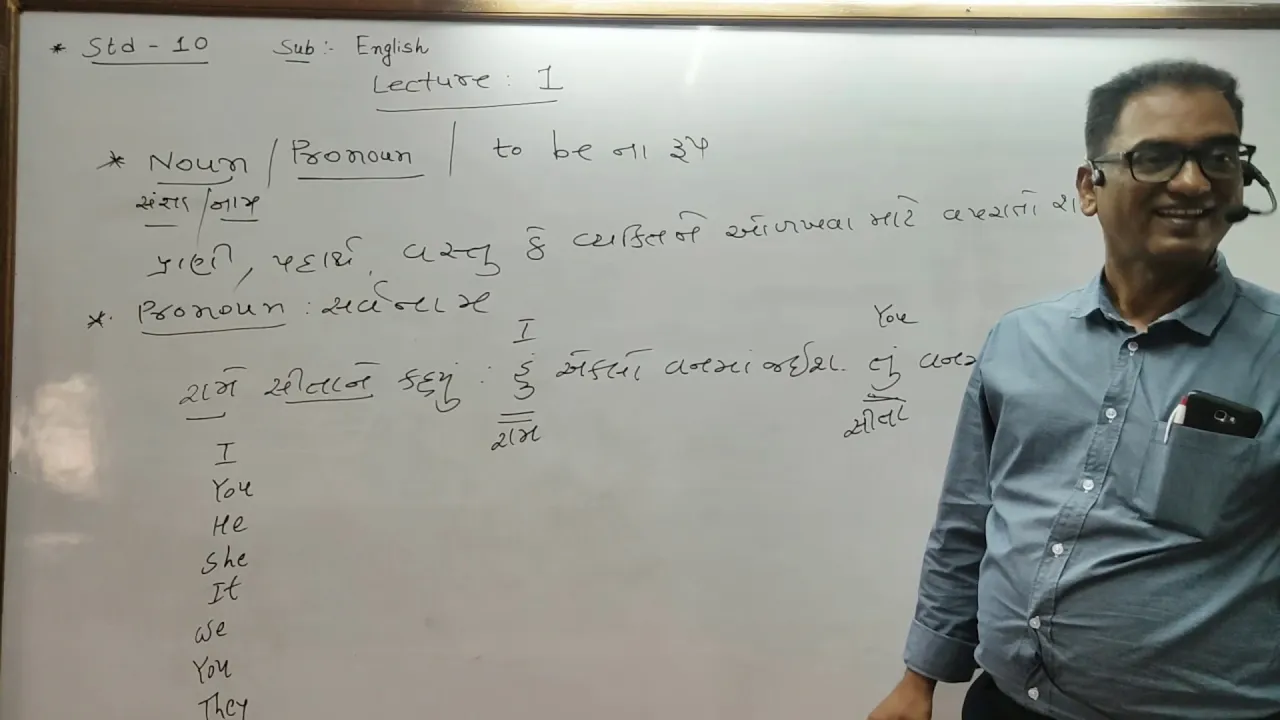 * Std - 10 Sub :- English
Lecture : 1
* Noun / Pronoun | to be ના રૂપ
સંજ્ઞા / નામ
પ્રાણી, પદાર્થ, વસ્તુ કે વ્યક્તિને ઓળખવા માટે વપરાતો
* Pronoun : સર્વનામ
I You
રામે સીતાને કહ્યુ : હું એકલો વનમાં જઈશ. તું
રામ સીતા
I
You
He
She
It
We
You
They